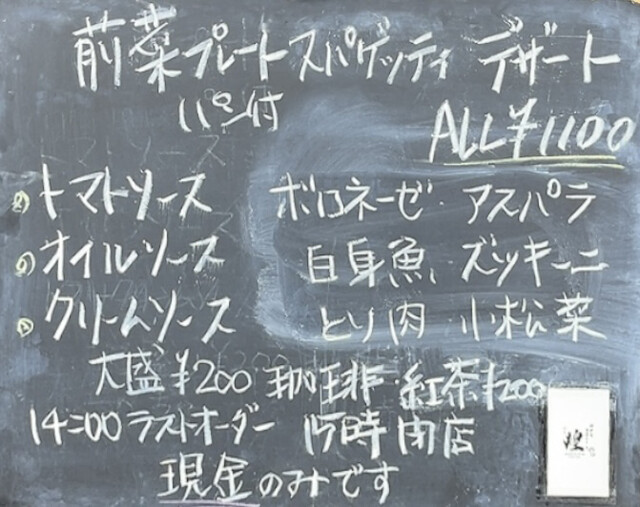 前菜プレート スパゲッティ デザート
パン付
ALL ¥1100
トマトソース ボロネーゼ・アスパラ
オイルソース 白身魚・ズッキーニ
クリームソース とり肉・小松菜
大盛¥200 珈琲・紅茶¥200
14:00 ラストオーダー 15時閉店
現金のみです